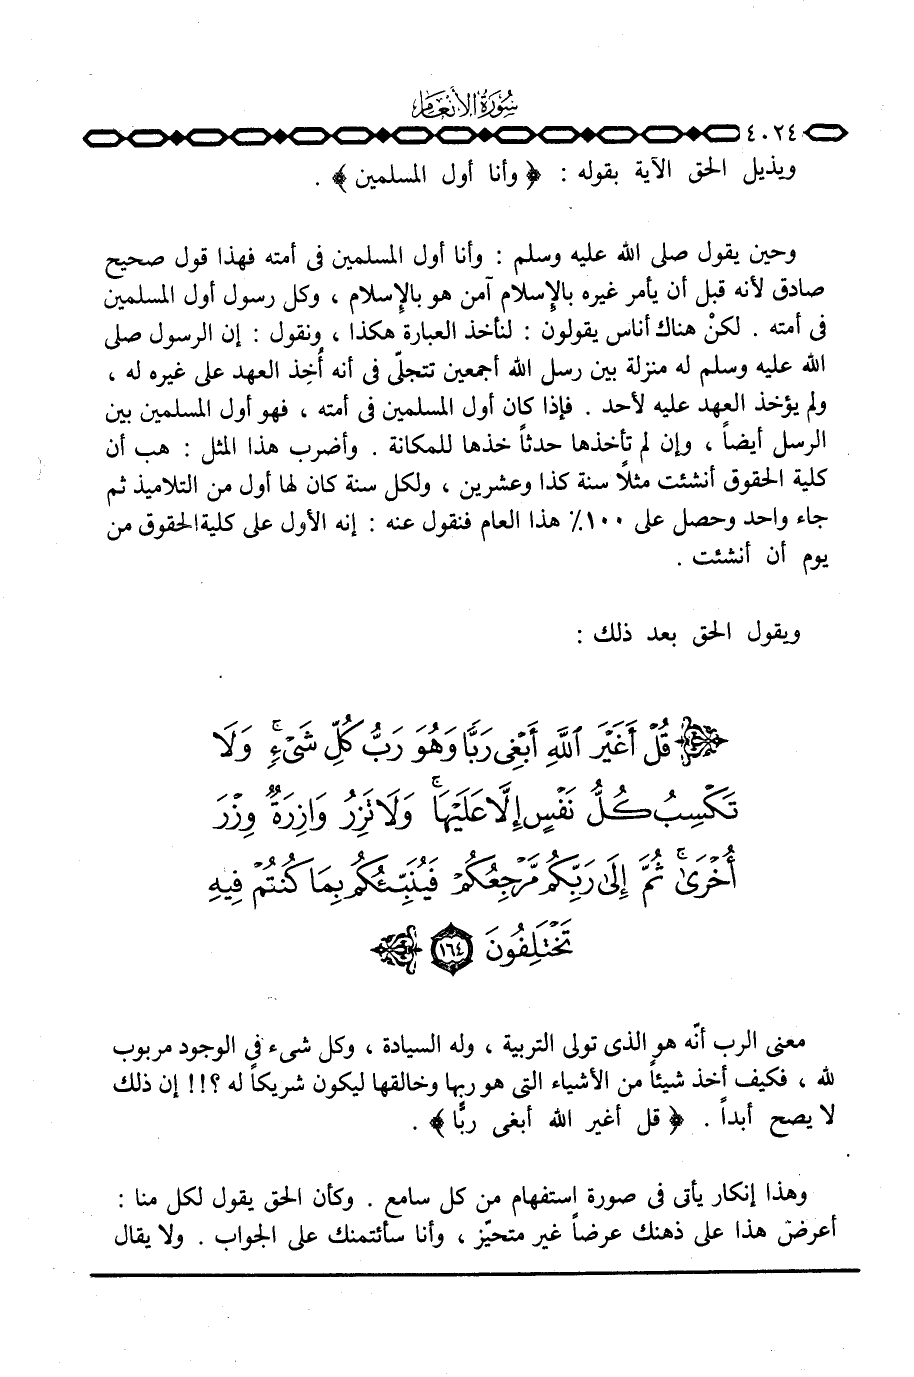 سُورَةُ الأَنْعَامِ
٤٠٢٤
ويذيل الحق الآية بقوله : ﴿ وأنا أول المسلمين ﴾ .
وحين يقول صلى الله عليه وسلم : وأنا أول المسلمين فى أمته فهذا قول صحيح
صادق لأنه قبل أن يأمر غيره بالإسلام آمن هو بالإسلام ، وكل رسول أول المسلمين
فى أمته . لكنْ هناك أناس يقولون : لنأخذ العبارة هكذا ، ونقول : إن الرسول صلى
الله عليه وسلم له منزلة بين رسل الله أجمعين تتجلّى فى أنه أُخِذ العهد على غيره له ،
ولم يؤخذ العهد عليه لأحد . فإذا كان أول المسلمين فى أمته ، فهو أول المسلمين بين
الرسل أيضاً ، وإن لم تأخذها حدثاً خذها للمكانة . وأضرب هذا المثل : هب أن
كلية الحقوق أنشئت مثلاً سنة كذا وعشرين ، ولكل سنة كان لها أول من التلاميذ ثم
جاء واحد وحصل على ١٠٠٪ هذا العام فنقول عنه : إنه الأول على كلية الحقوق من
يوم أن أنشئت .
ويقول الحق بعد ذلك :
قُلْ أَغَيْرَ ٱللَّهِ أَبْغِى رَبًّا وَهُوَ رَبُّ كُلِّ شَىْءٍ ۚ وَلَا
تَكْسِبُ كُلُّ نَفْسٍ إِلَّا عَلَيْهَا ۚ وَلَا تَزِرُ وَازِرَةٌ وِزْرَ
أُخْرَىٰ ۚ ثُمَّ إِلَىٰ رَبِّكُم مَّرْجِعُكُمْ فَيُنَبِّئُكُم بِمَا كُنتُمْ فِيهِ
تَخْتَلِفُونَ ١٦٤
معنى الرب أنّه هو الذى تولى التربية ، وله السيادة ، وكل شىء فى الوجود مربوب
لله ، فكيف أخذ شيئاً من الأشياء التى هو ربها وخالقها ليكون شريكاً له ؟!! إن ذلك
لا يصح أبداً . ﴿ قل أغير الله أبغى ربًّا ﴾ .
وهذا إنكار يأتى فى صورة استفهام من كل سامع . وكأن الحق يقول لكل منا :
أعرضْ هذا على ذهنك عرضاً غير متحيّز ، وأنا سأئتمنك على الجواب . ولا يقال